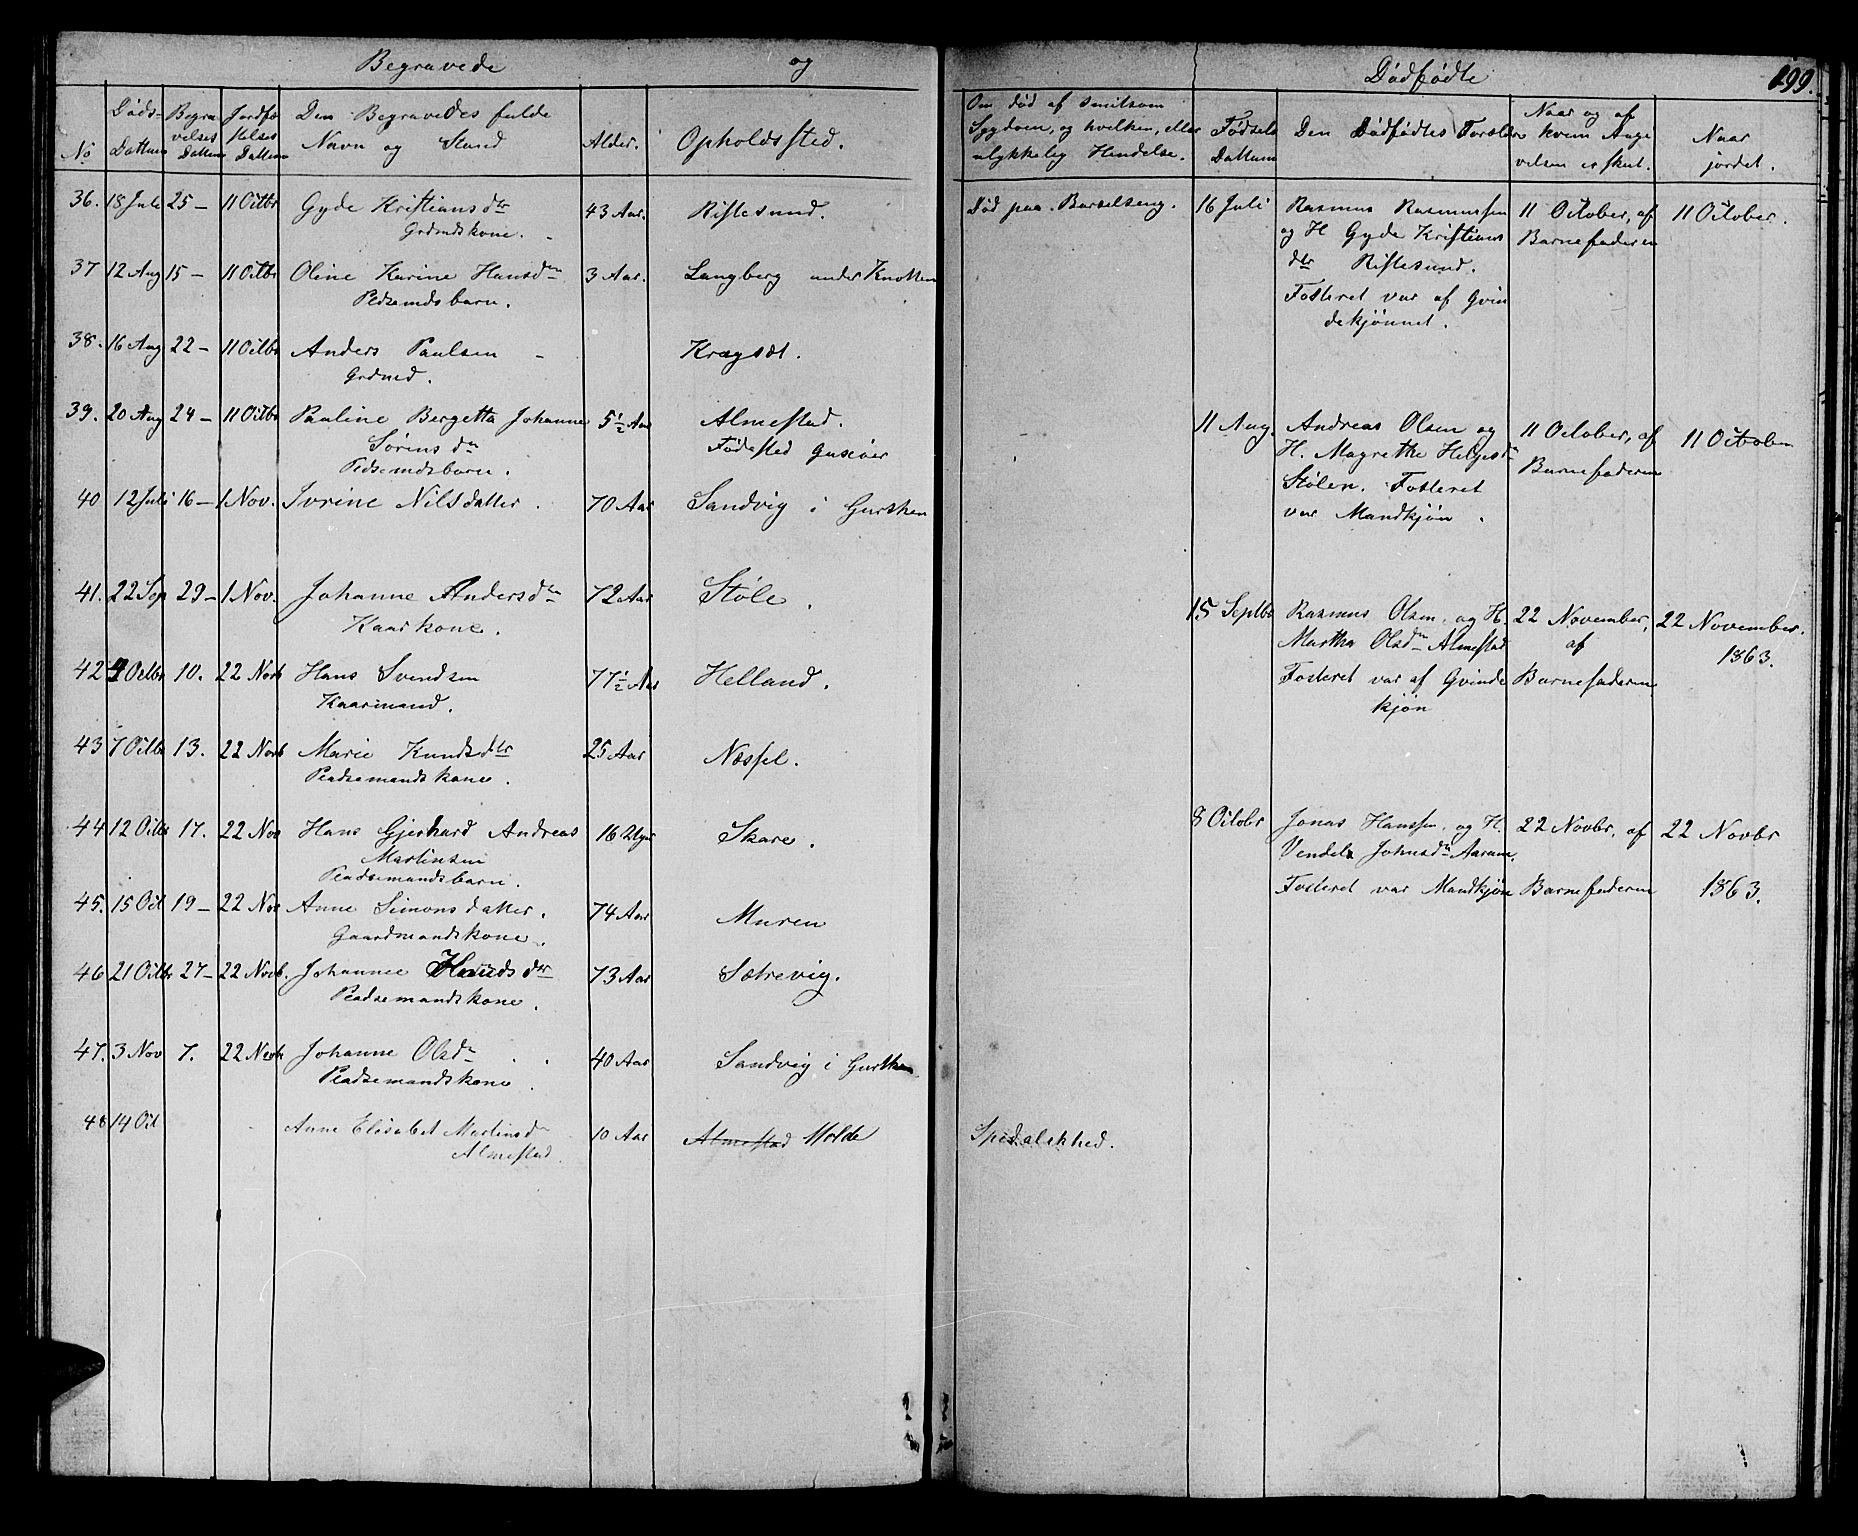 Begravede og Dødfødte 199.
No
Døds-
Dattum
Begra
velses
Dattum
Jordfæ
stelses
Dattum
Den Begravedes fulde
Navn og Stand
Alder.
Opholdssted.
Om død af smitsom
Sygdom, og hvilken, eller
ulykkelig Hendelse.
Fødsels
Dattum
Den Dødfødtes Forældre
Naar og af
hvem Angi
velsen er skeet.
Naar
jordet.
36. 18 Juli 25 — 11 Octbr Gyde Kristiansdtr 43 Aar. Riflesund. Død paa Barselseng.
Grdmdskone.
16 Juli Rasmus Rasmussen 11 October, af 11 October.
og H Gyde Kristians Barnefaderen
dtr Riflesund.
Fosteret var af Qvin
dekjønnet.
37 12 Aug 15 — 11 Octbr Oline Karine Hansdtr 3 Aar. Langberg under Knotten
Pldsemdsbarn.
38. 16 Aug 22 — 11 Octbr Anders Paulsen Kragsæt.
Grdmd.
39. 20 Aug 24 — 11 Octbr Pauline Bergetta Johanne 5½ Aar Almestad.
Sørensdtr Fødested
Pldsemdsbarn.
11 Aug. Andreas Olsen og 11 October, af 11 October
H. Magrethe Helgesdtr Barnefaderen
Stølen. Fosteret
var Mandkjøn.
40 12 Juli 16 — 1 Nov. Ivrine Nilsdatter. 70 Aar Sandvig i Gursken
41. 22 Sep 29 — 1 Nov. Johanne Andersdtr 72 Aar Støle.
Kaarkone.
15 Septbr Rasmus Olsen, og H. 22 November, 22 November.
Martha Olsdtr Almestad af 1863.
Fosteret var af Qvinde Barnefaderen
kjøn
42 4 Octbr 10. 22 Novb Hans Svendsen 77½ Aar Helland.
Kaarmand.
43 7 Octbr 13. 22 Novb Marie Knudsdtr 25 Aar Næssel.
Pladsemandskone.
44 12 Octbr 17. 22 Nov Hans Gjerhard Andreas 16 Uger Skare.
Martinsen
Pladsemandsbarn.
8 Octobr Jonas Hanssen, og H. 22 Novbr, af 22 Novbr
Vendele Johnsdtr Aarum.
Fosteret var Mandkjøn Barnefaderen 1863.
45. 15 Oct 19 — 22 Nov Anne Simonsdatter. 74 Aar Muren
Gaardmandskone.
46 21 Octbr 27 — 22 Novb. Johanne dtr 73 Aar Sætrevig.
Pladsemandskone.
47. 3 Nov 7. 22 Novb Johanne Olsdtr 40 Aar Sandvig i Gursken
Pladsemandskone.
48 14 Oct Anne Elisabet Martinsdtr 10 Aar Almestad Molde Spedalskhed.
Almestad.